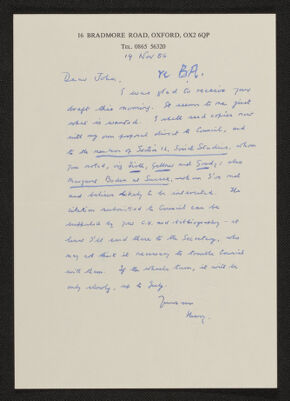 16 BRADMORE ROAD, OXFORD, OX2 6QP
TEL. 0865 56320
19 Nov 86
Dear John, re B.A.
I was glad to receive your
draft this morning. It seems to me just
what is wanted. I shall send copies now
with my own proposal direct to Council, and
to the members of Section 12, Social Studies, whom
you noted, viz Firth, Gellner and Goody; also
Margaret Boden at Sussex, whom I've met
and believe likely to be interested. The
citation submitted to Council can be
supported by your C.V. and bibliography - at
least I'll send these to the Secretary, who
may not think it necessary to trouble Council
with them. If the wheels turn, it will be
only slowly, up to July.
Yours ever
Henry.